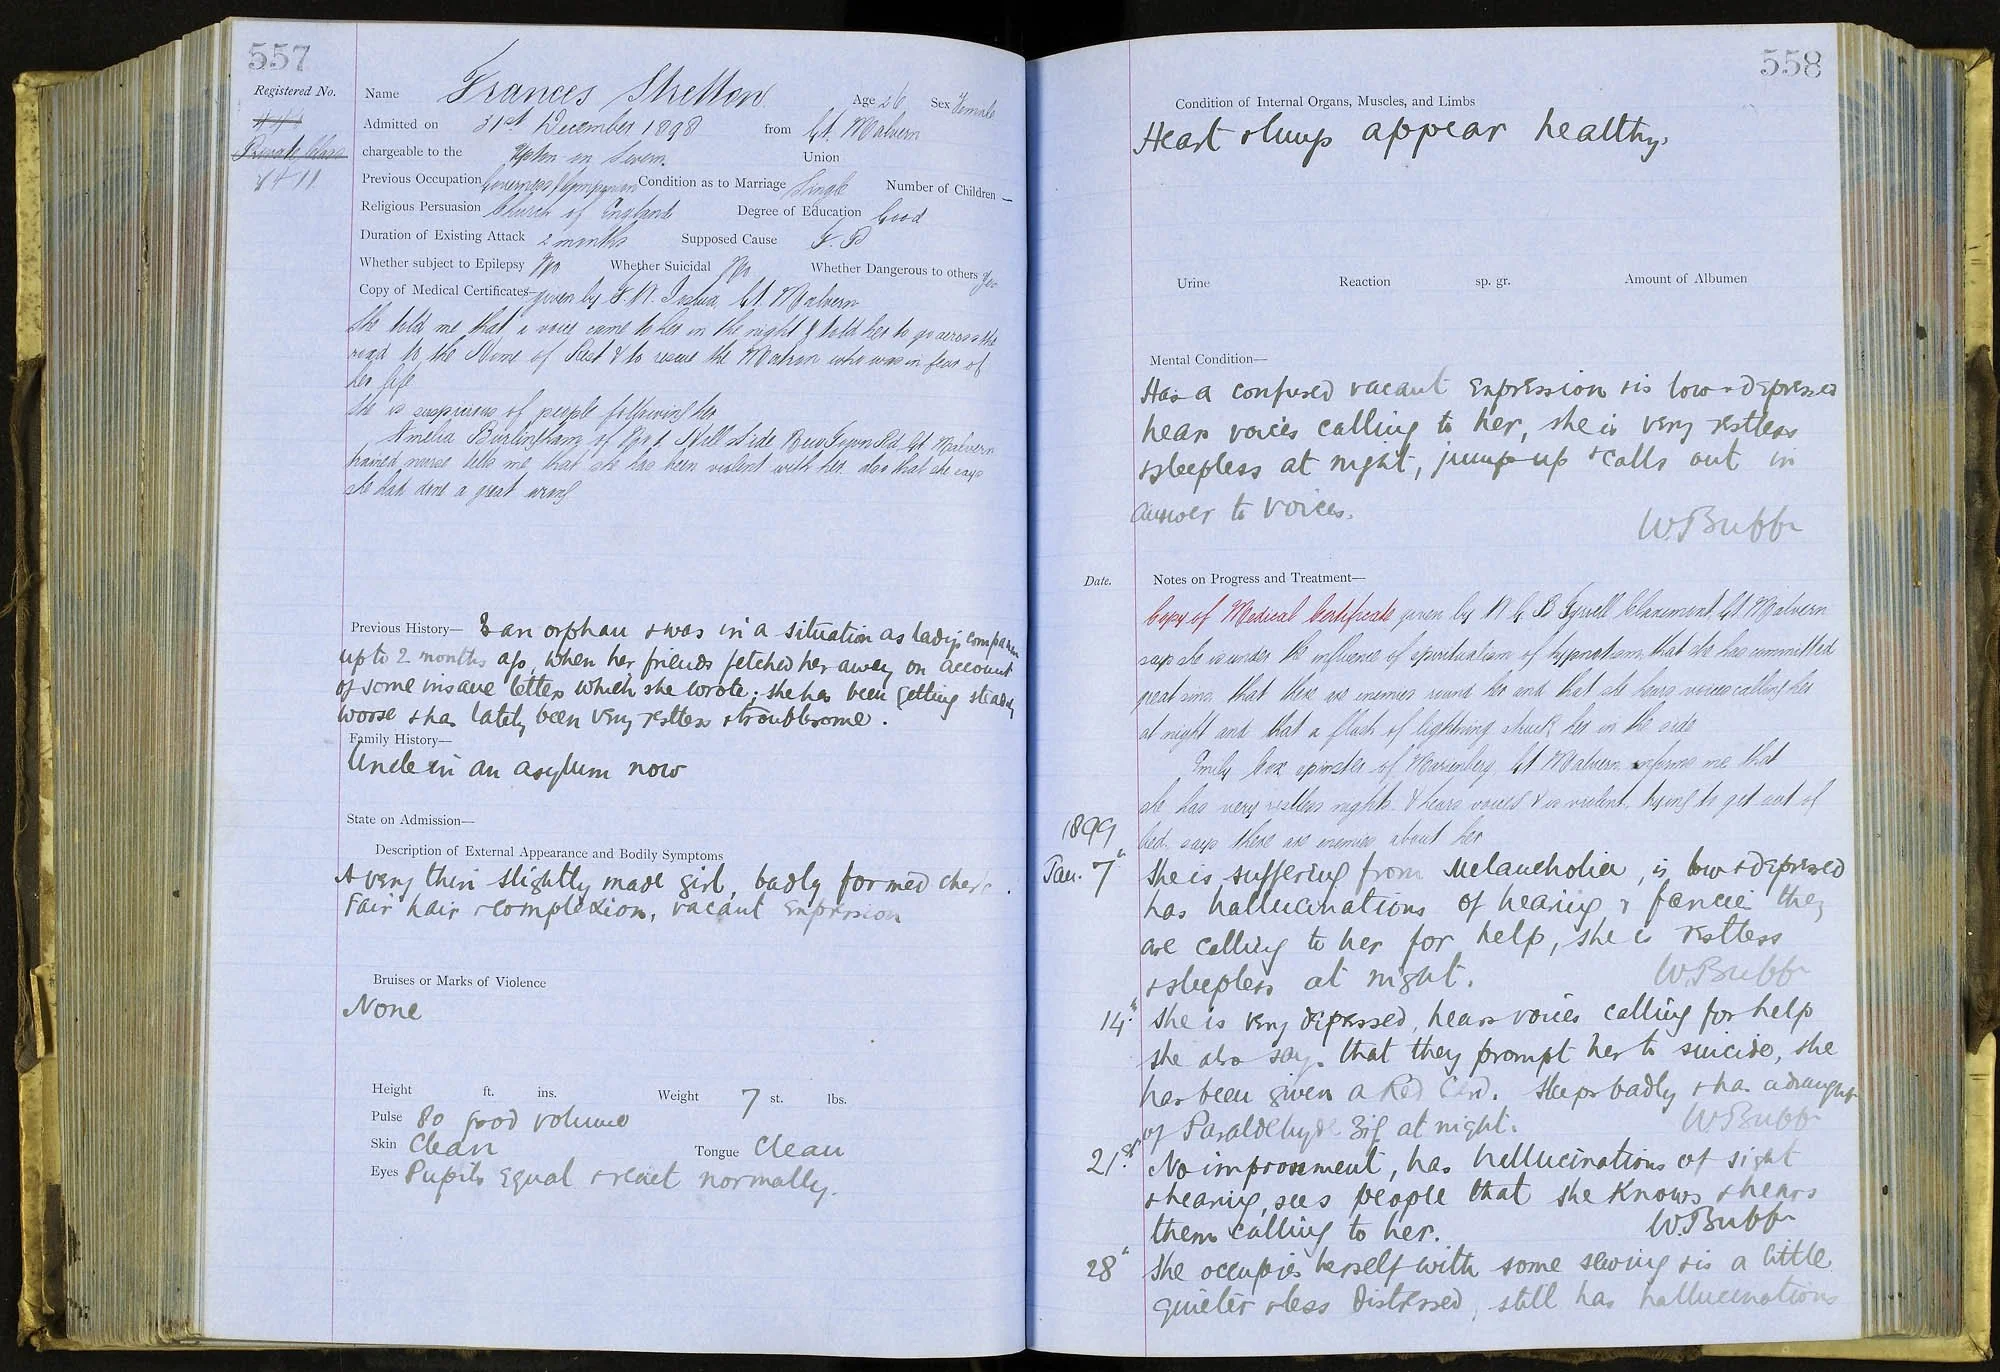 557
Registered No.
Private Class
Name Frances Stretton Age 26 Sex Female
Admitted on 31st December 1898 from Gt. Malvern
chargeable to the Upton on Severn Union
Previous Occupation Governess & Companion Condition as to Marriage Single Number of Children —
Religious Persuasion Church of England Degree of Education Good
Duration of Existing Attack 2 months Supposed Cause
Whether subject to Epilepsy No Whether Suicidal No Whether Dangerous to others Yes
Copy of Medical Certificates given by F. W. Joshua, Gt. Malvern
She told me that a voice came to her in the night & told her to go across the
road to the Home of Rest & to rescue the Matron who was in fear of
her life
She is suspicious of people following her
Amelia Burlingham of Hill Side Gt Malvern
trained nurse tells me that she has been violent with her also that she says
she had done a great wrong
Previous History— Is an orphan & was in a situation as lady's companion
up to 2 months ago, when her friends fetched her away on account
of some insane letters which she wrote; she has been getting steadily
worse & has lately been very restless & troublesome.
Family History—
Uncle in an asylum now
State on Admission—
Description of External Appearance and Bodily Symptoms
A very thin slightly made girl, badly formed chest.
Fair hair & complexion, vacant expression
Bruises or Marks of Violence
None
Height ft. ins. Weight 7 st. lbs.
Pulse 80 good volume
Skin Clean Tongue Clean
Eyes Pupils equal & react normally.
558
Condition of Internal Organs, Muscles, and Limbs
Heart & lungs appear healthy.
Urine Reaction sp. gr. Amount of Albumen
Mental Condition—
Has a confused vacant expression & is low & depressed
hears voices calling to her, she is very restless
& sleepless at night, jumps up & calls out in
answer to voices.
Date. Notes on Progress and Treatment—
Copy of Medical Certificate given by Gt. Malvern
says she is under the influence of spiritualism of hypnotism, that she has committed
great sins, that there are enemies round her and that she hears voices calling her
at night and that a flash of lightning struck her in the side
Emily Cox spinster of Gt Malvern informs me that
she has very restless nights & hears voices & is violent, trying to get out of
bed, says there are enemies about her
1899
Jan. 7" She is suffering from Melancholia, is low & depressed
has hallucinations of hearing & fancies they
are calling to her for help, she is restless
& sleepless at night.
14." She is very depressed, hears voices calling for help
she also says that they prompt her to suicide, she
has been given a Red Card. Sleeps badly & has a draught
of Paraldehyde at night.
21.st No improvement, has hallucinations of sight
& hearing, sees people that she knows & hears
them calling to her.
28" She occupies herself with some sewing & is a little
quieter & less distressed, still has hallucinations